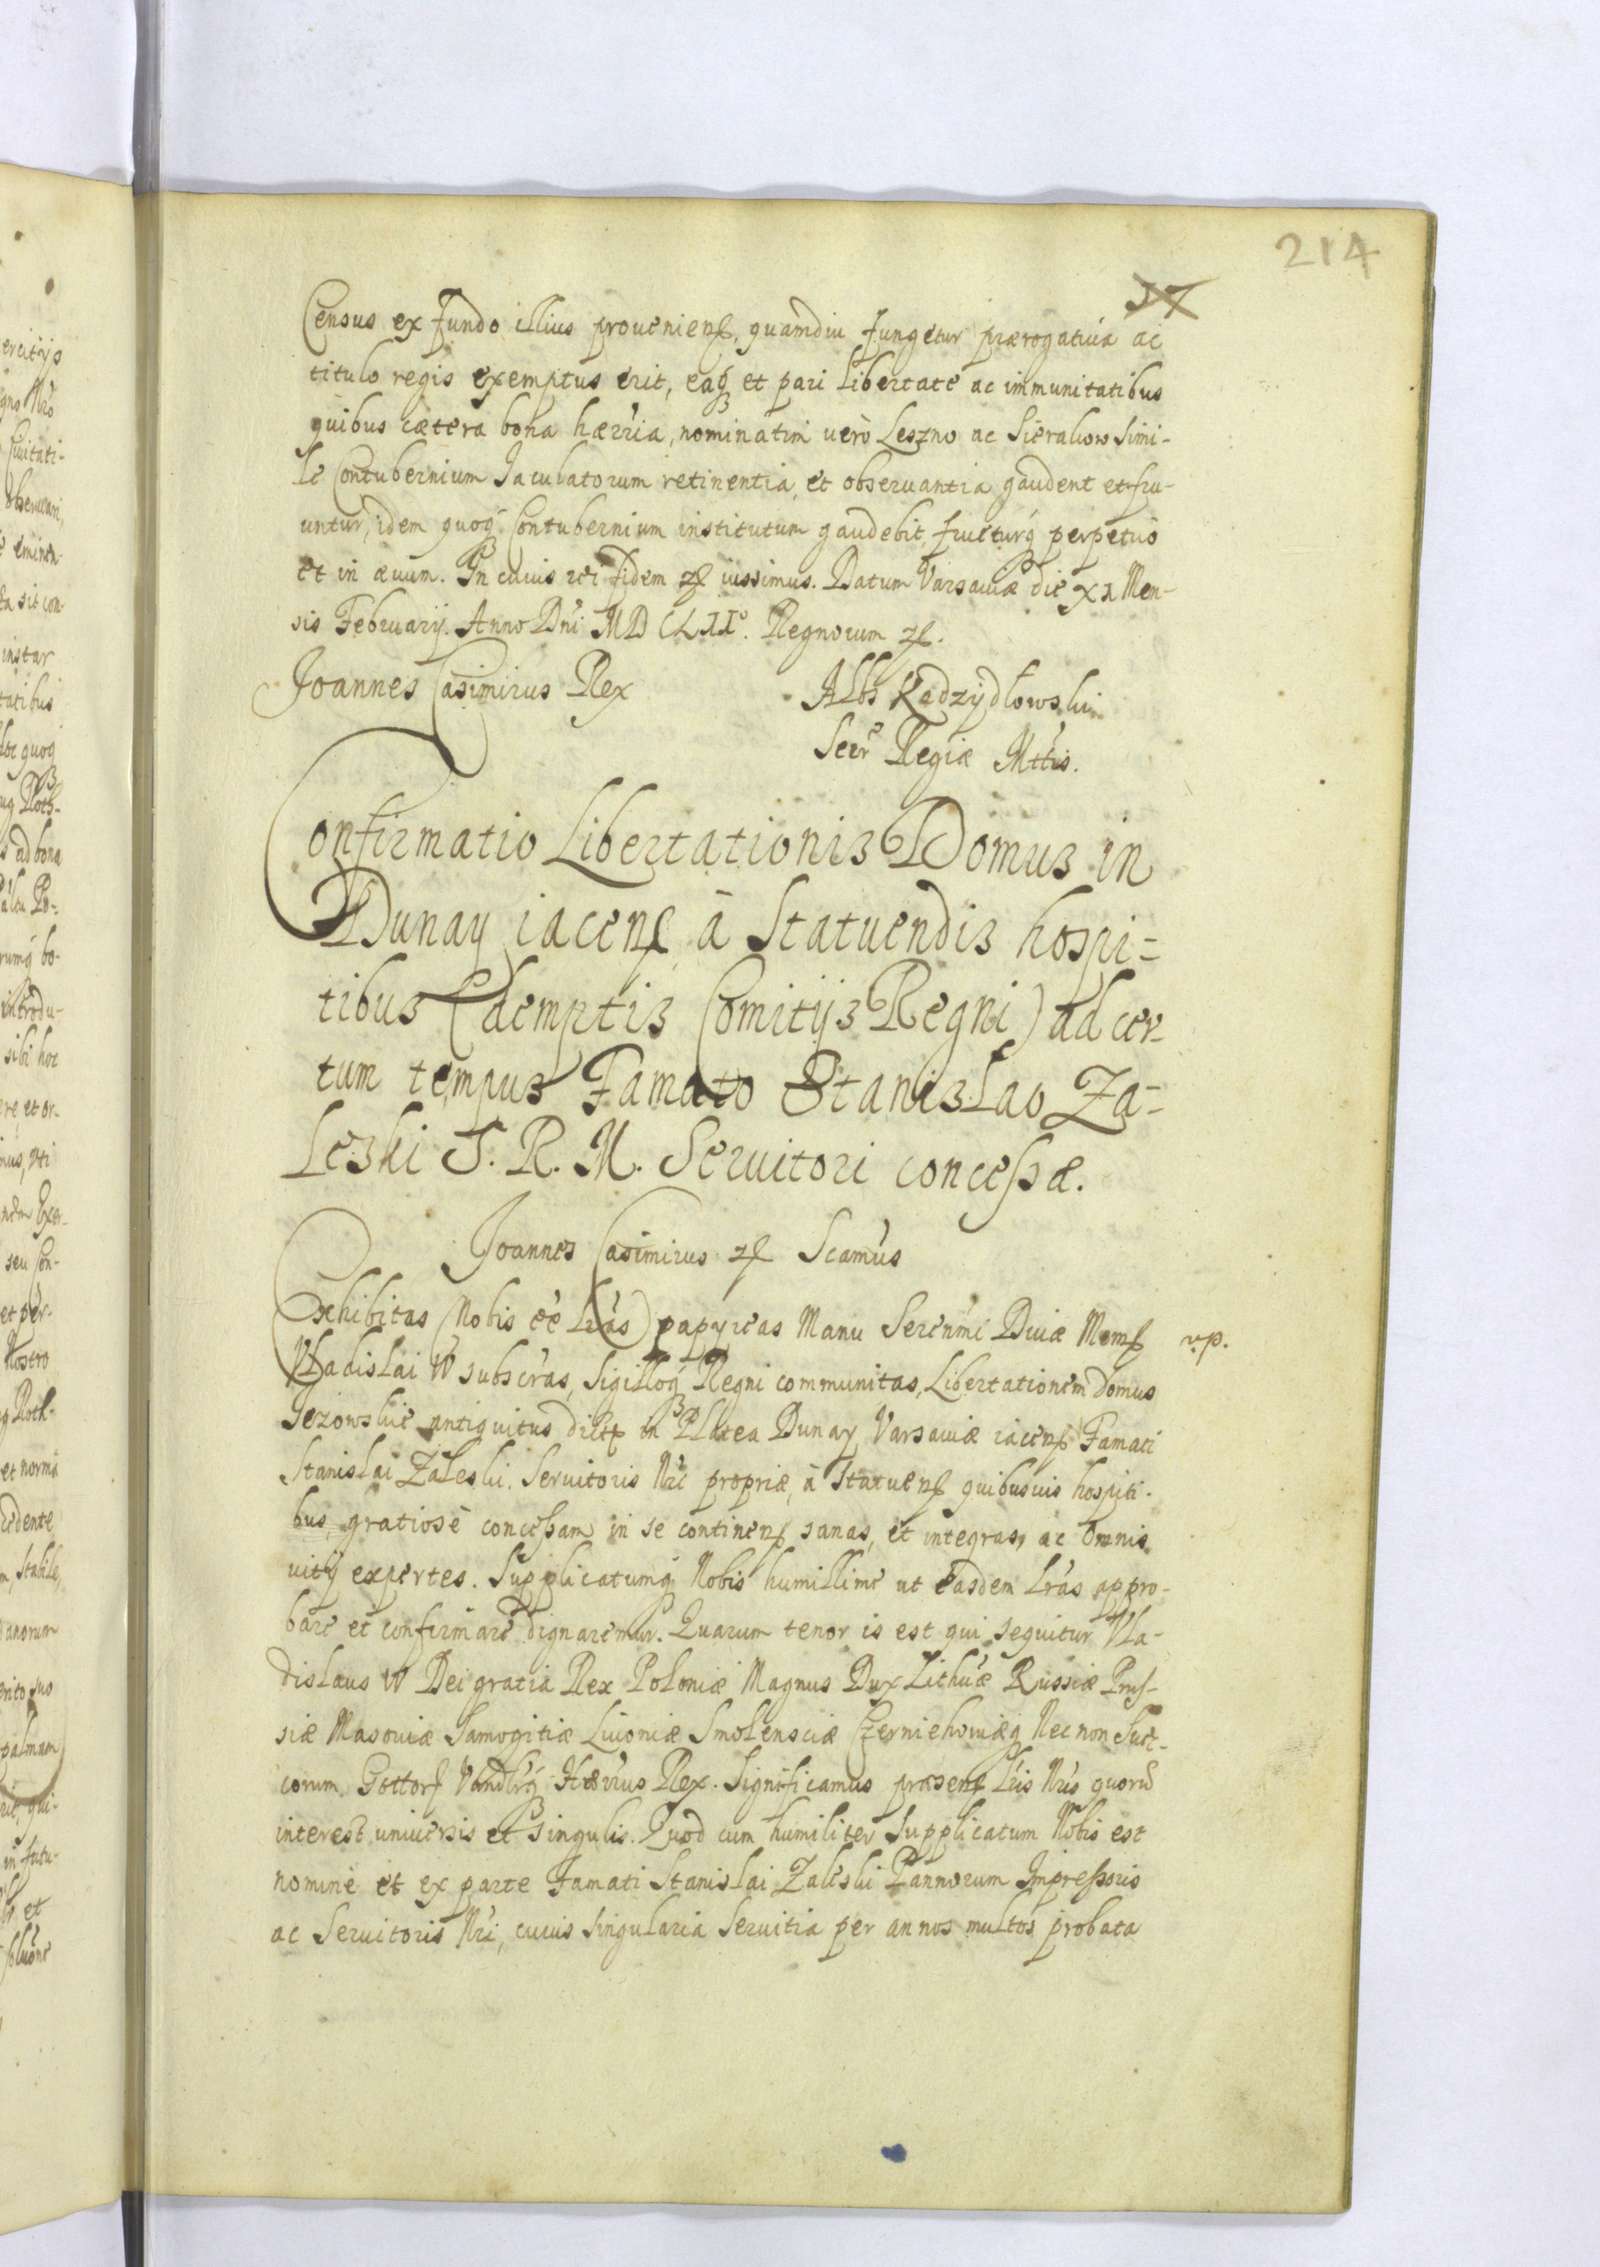 214
57
Census ex fundo illius prouenienꝭ, quamdiu fungetur prærogatiua ac
titulo regis exemptus erit, eaqꝫ et pari Libertate ac immunitatibus
quibus cætera bona hærria, nominatim uero Leszno ac Sierakow simi-
le Contubernium Jaculatorum retinentia, et obseruantia gaudent et fru-
untur, idem quoqꝫ Contubernium institutum gaudebit, frueturqꝫ perpetuo
et in æuum. In cuius rei fidem ꝛꝭ iussimus. Datum Varsauiæ die XX Men-
sis Februarij. Anno Dni MDCLII°. Regnorum ꝛꝭ.
Joannes Casimirus Rex Albs Kadzydłowski
Secr Regiæ Mttis.
Confirmatio Libertationis Domus in
Dunay iacenꝭ à Statuendis hospi=
tibus (demptis Comitijs Regni) ad cer-
tum tempus Famato Stanislao Za=
leski S. R. M. Seruitori concessæ.
Joannes Casimirus ꝛꝭ Scamus
Exhibitas Nobis ee Lras papyreas Manu Serenmi Diuæ Memꝭ v.p.
Vladislai IV subscras, Sigilloqꝫ Regni communitas, Libertationem domus
Jezowskie antiquitus dictꝭ in Platea Dunay Varsauiæ iacenꝭ Famati
Stanislai Zaleski. Seruitoris Nri propriæ, à statuenꝭ quibusuis hospiti-
bus, gratiosè concessam in se continenꝭ sanas, et integras, ac omnis
uitij expertes. Supplicatumqꝫ Nobis humillime ut easdem Lras appro-
bare et confirmare dignaremur. Quarum tenor is est qui sequitur Vla-
dislaus IV Dei gratia Rex Poloniæ Magnus Dux Lithuæ Russiæ Prus-
siæ Masouiæ Samogitiæ Liuoniæ Smolensciæ Czerniehouiæqꝫ Nec non Sue-
corum Gottorꝭ Vandlrqꝫ Hærrus Rex. Significamus præsenꝭ Lris Nris quorū
interest uniuersis et singulis. Quod cum humiliter supplicatum Nobis est
nomine et ex parte Famati Stanislai Zaleski Pannorum Impressoris
ac Seruitoris Nri, cuius singularia Seruitia per annos multos probata